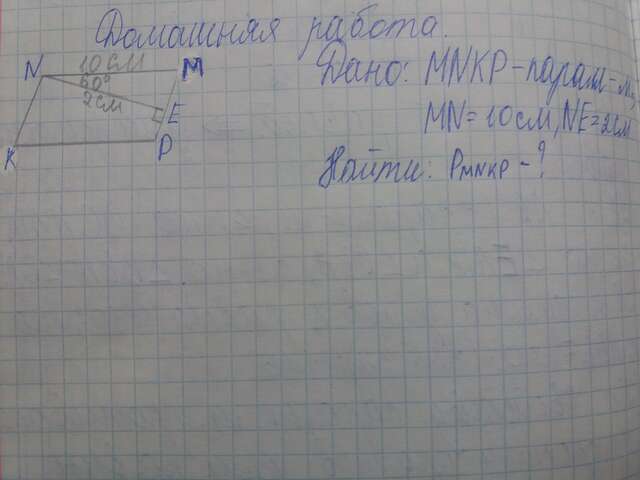 Домашняя работа.
N 10 см M
60°
2 см
E
K P
Дано: MNKP-парал-м,
MN=10см, NE=2см
Найти: PMNKP-?